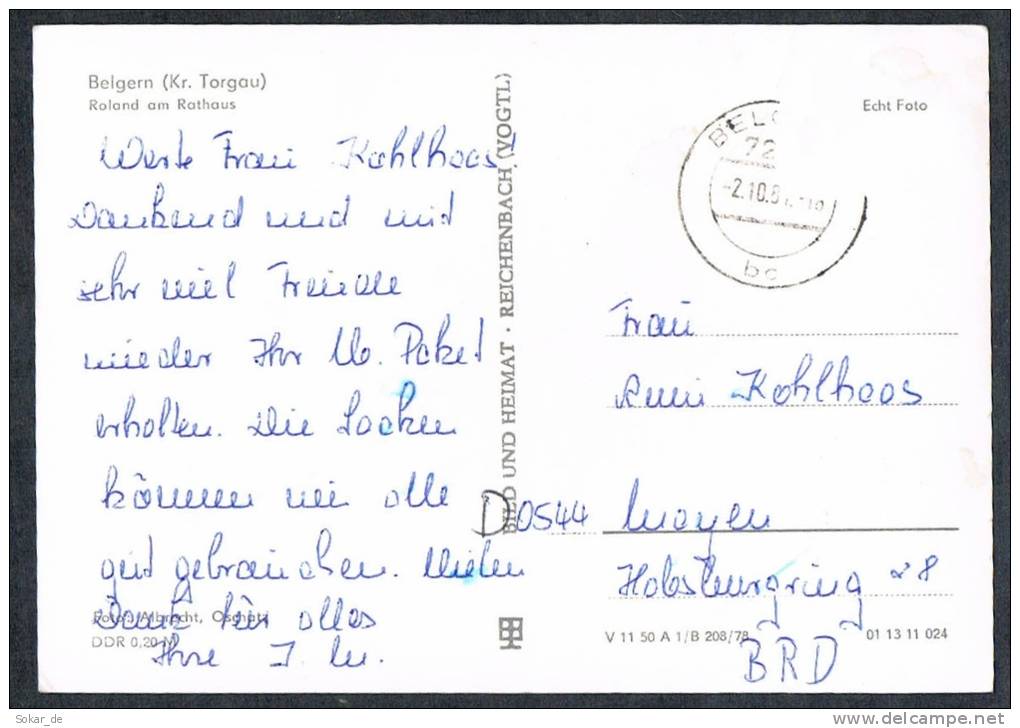 Belgern (Kr. Torgau)
Roland am Rathaus
Werte Frau Kohlhaas!
Dankend und mit
sehr viel Freude
wieder Ihr lb. Paket
erhalten. Die Sachen
können wir alle
gut gebrauchen. Vielen
Dank für alles
Ihre J.
Foto: Albrecht, Oschatz
DDR 0,20 M
BILD UND HEIMAT · REICHENBACH (VOGTL)
Echt Foto
BELG
72
-2.10.8
bc
Frau
Anni Kohlhaas
D 0544 Mayen
Habsburgring 28
BRD
V 11 50 A 1/B 208/78
01 13 11 024
Sokar_de
www.delcampe.net